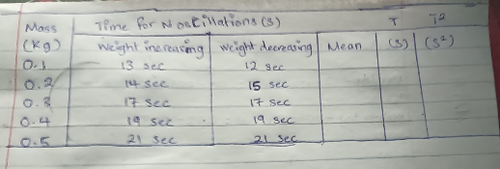 Mass Time for N oscillations (s) T T²
(kg) Weight increasing Weight decreasing Mean (s) (s²)
0.1 13 sec 12 sec
0.2 14 sec 15 sec
0.3 17 sec 17 sec
0.4 19 sec 19 sec
0.5 21 sec 21 sec